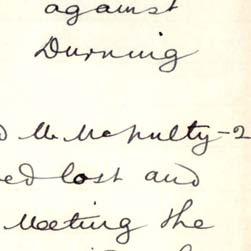 against
Durning
Mr McNulty - 2
ed lost and
Meeting the